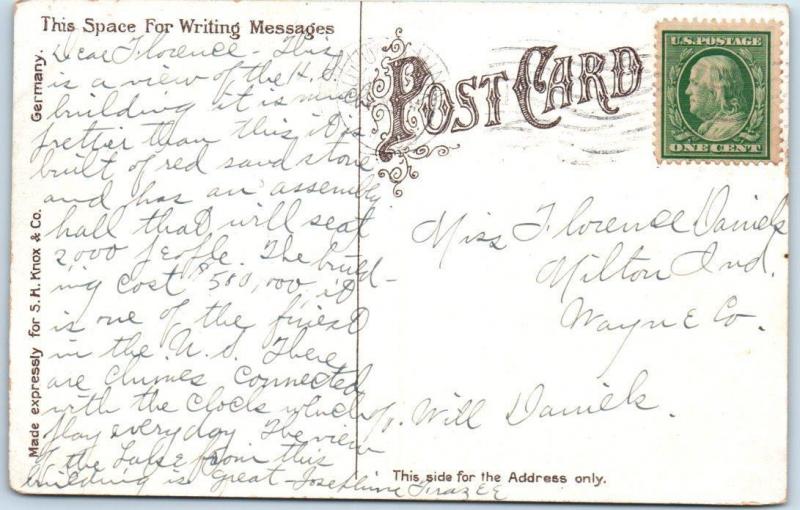 This Space For Writing Messages
Dear Florence - This
is a view of the H. S.
building it is much
prettier than this it is
built of red sand stone
and has an assembly
hall that will seat
2000 people. The build-
ing cost $500,000, it
is one of the finest
in the U. S. There
are chimes connected
with the clock which
play every day The view
of the Lake from this
building is great - Josephine
Made expressly for S. H. Knox & Co. Germany.
POST CARD
U.S. POSTAGE
ONE CENT
Miss Florence Daniels
Milton Ind.
Wayne Co.
Will Daniels.
This side for the Address only.